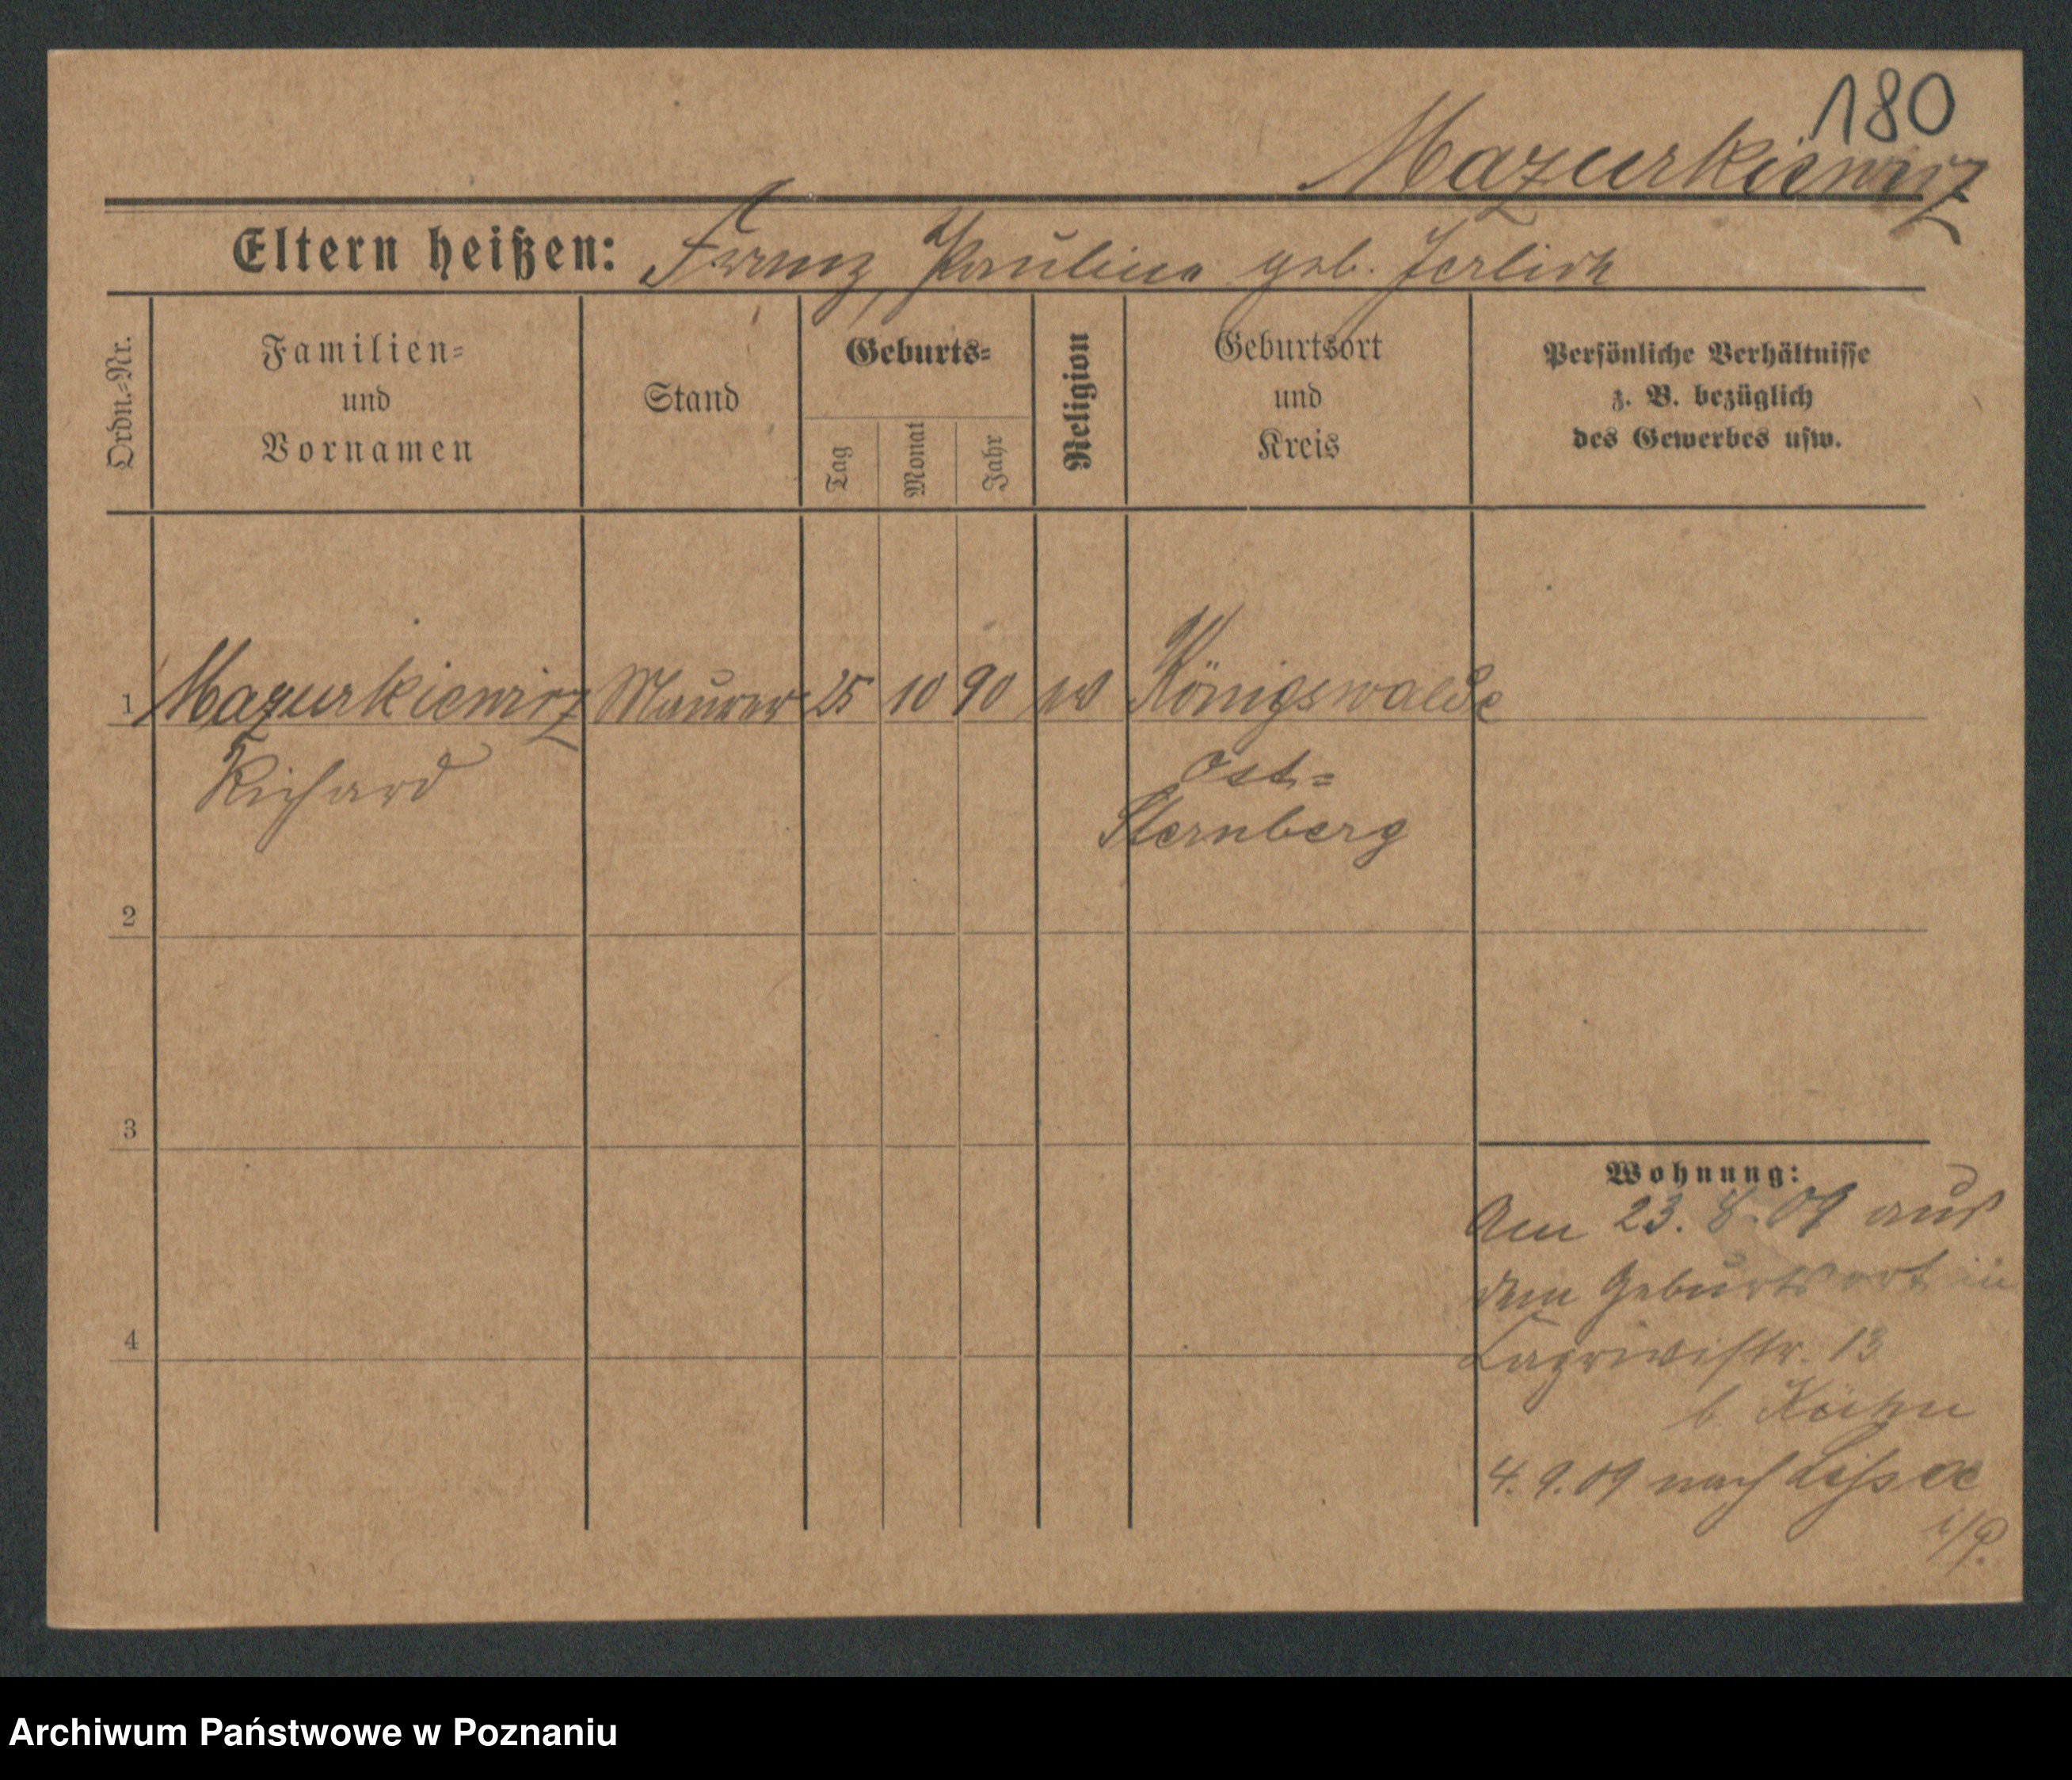 180
Mazurkiewicz
Eltern heißen: Franz, Pauline geb. Jerlich
Ordn.-Nr.
Familien-
und
Vornamen
Stand
Geburts-
Tag
Monat
Jahr
Religion
Geburtsort
und
Kreis
Persönliche Verhältnisse
z. B. bezüglich
des Gewerbes usw.
1 Mazurkiewicz Maurer 25 10 90 Königswalde
Richard
Ost-
Sternberg
2
3
4
Wohnung:
Am 23. 8. 09 aus
dem Geburtsort in
13
b.
4. 9. 09 nach Lissa
i/P.
Archiwum Państwowe w Poznaniu